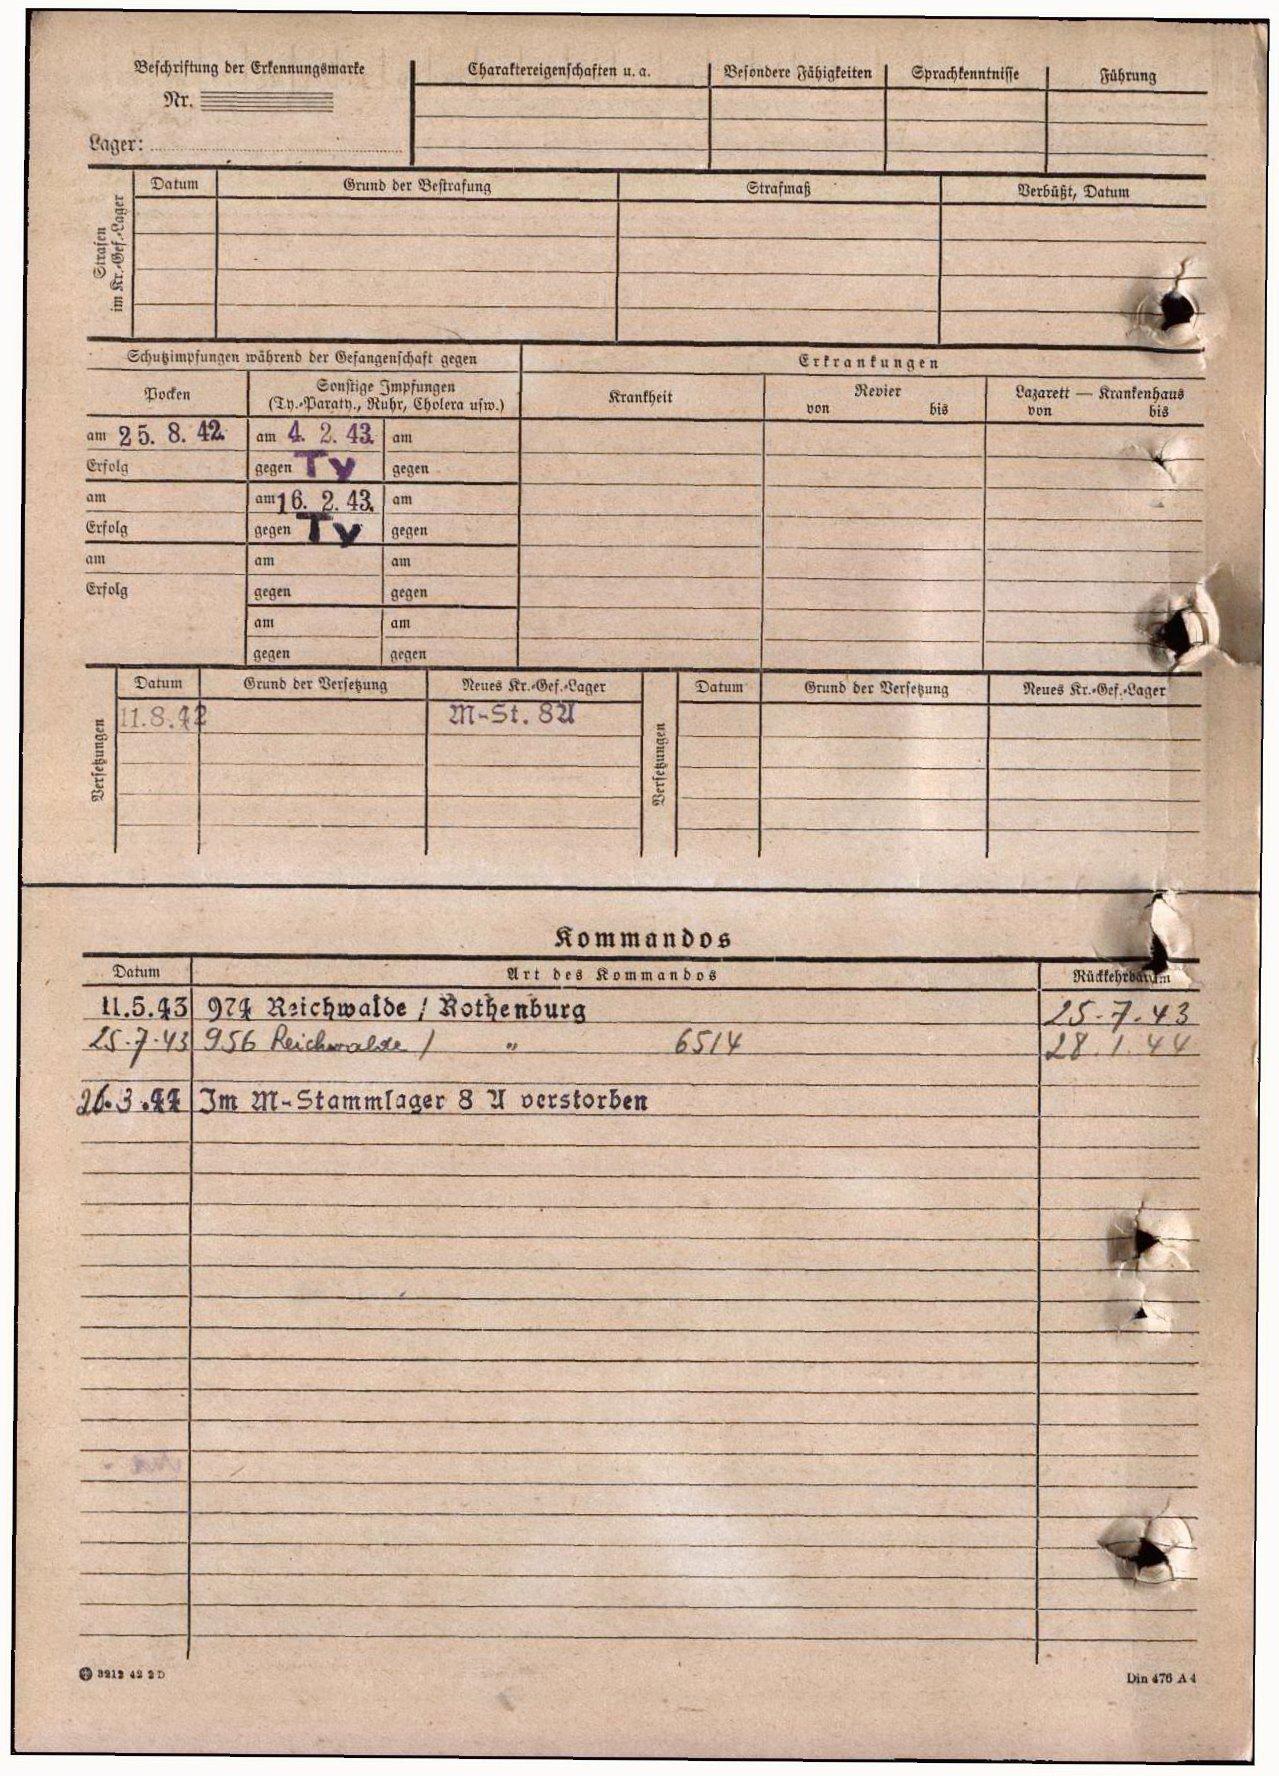 Beschriftung der Erkennungsmarke
Nr.
Lager:
Charaktereigenschaften u. a.
Besondere Fähigkeiten
Sprachkenntnisse
Führung
Strafen im Kr.-Gef.-Lager
Datum
Grund der Bestrafung
Strafmaß
Verbüßt, Datum
Schutzimpfungen während der Gefangenschaft gegen
Erkrankungen
Pocken
Sonstige Impfungen
(Ty.-Paraty., Ruhr, Cholera usw.)
Krankheit
Revier
von bis
Lazarett — Krankenhaus
von bis
am 25. 8. 42. am 4. 2. 43. am
Erfolg gegen Ty gegen
am am 16. 2. 43. am
Erfolg gegen Ty gegen
am am am
Erfolg gegen gegen
am am
gegen gegen
Versetzungen
Datum Grund der Versetzung Neues Kr.-Gef.-Lager
11.8.42 M-St. 8A
Versetzungen
Datum Grund der Versetzung Neues Kr.-Gef.-Lager
Kommandos
Datum Art des Kommandos Rückkehrdatum
11.5.43 974 Reichwalde / Rothenburg 25.7.43
25.7.43 956 Reichwalde / " 6514 28.1.44
26.3.44 Im M-Stammlager 8 A verstorben
3212 42 2 D
Din 476 A 4